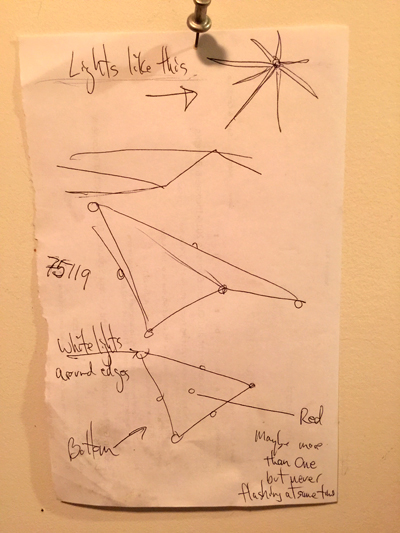 Lights like this.
75/19
White lights
around edges
Red
Bottom
Maybe more
than One
but never
flashing at same time